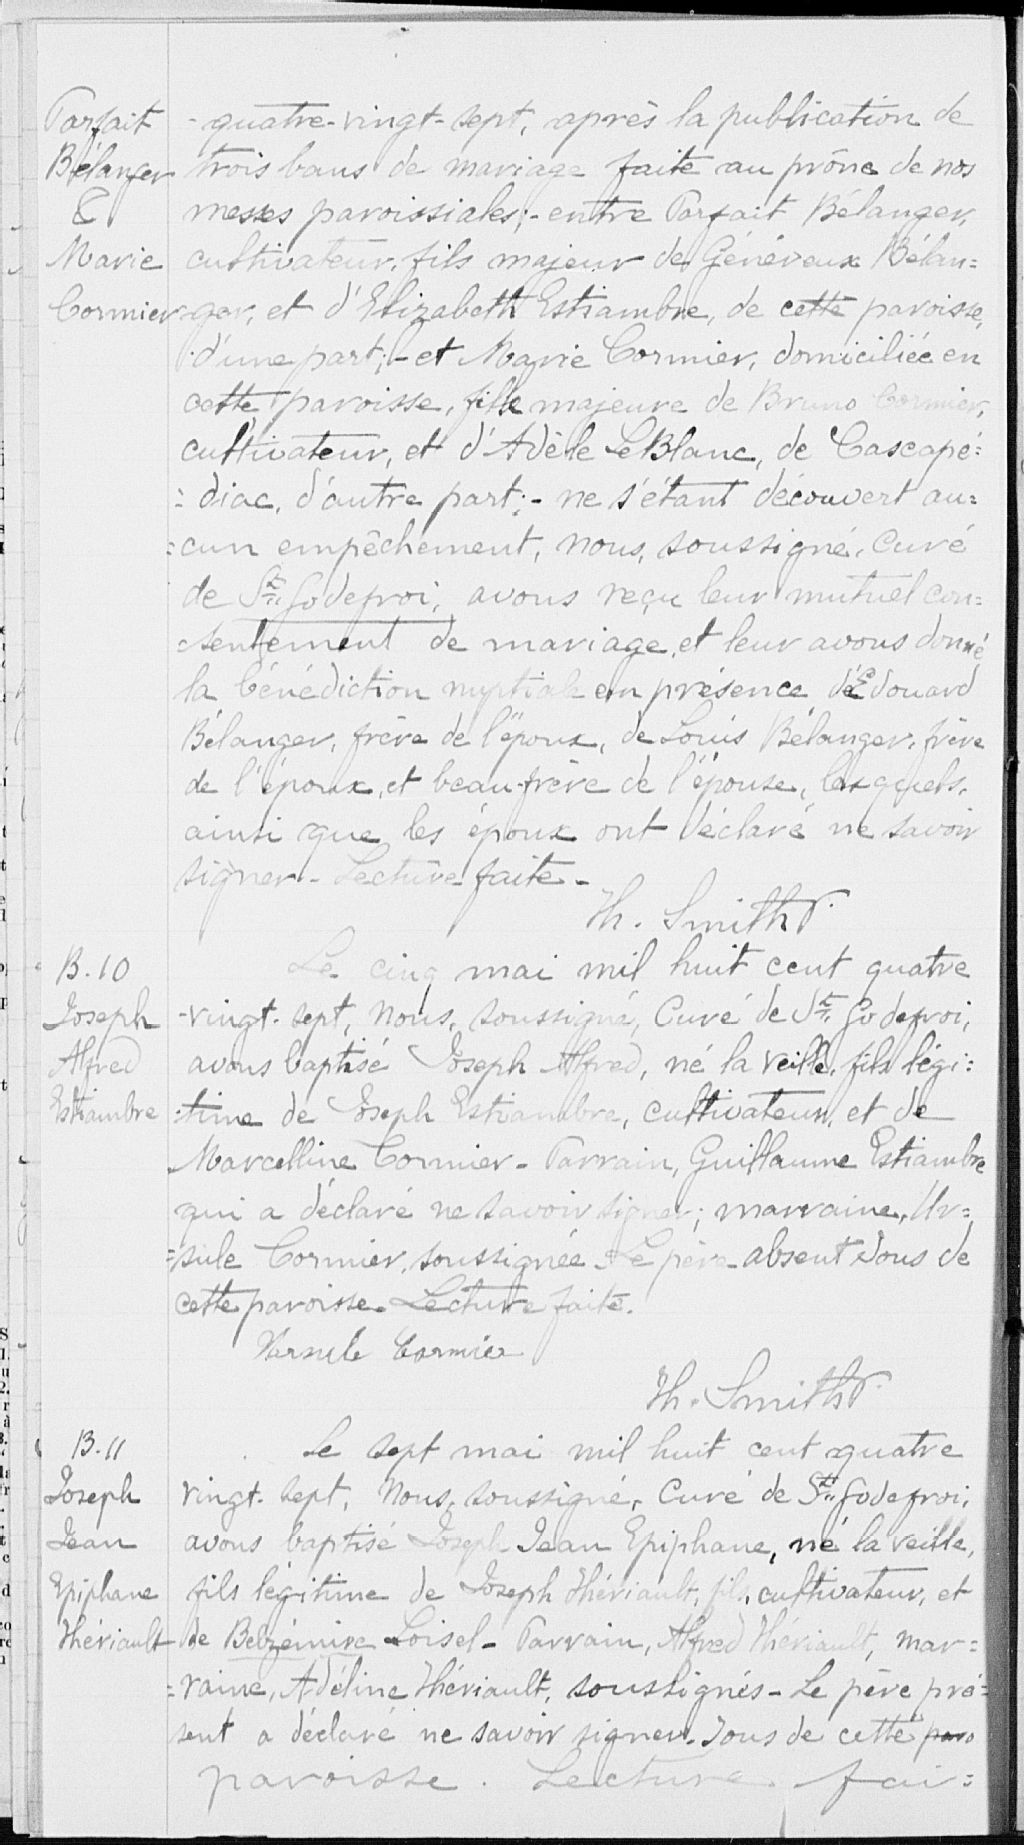 Parfait
Bélanger
&
Marie
Cormier
- quatre-vingt-sept, après la publication de
trois bans de mariage faite au prône de nos
messes paroissiales; - entre Parfait Bélanger,
cultivateur, fils majeur de Généreux Bélan=
ger, et d'Elizabeth Estiambre, de cette paroisse,
d'une part; - et Marie Cormier, domiciliée en
cette paroisse, fille majeure de Bruno Cormier,
cultivateur, et d'Adèle LeBlanc, de Cascapé=
=diac, d'autre part; - ne s'étant découvert au=
=cun empêchement, nous, soussigné, Curé
de St. Godefroi, avons reçu leur mutuel con=
=sentement de mariage, et leur avons donné
la bénédiction nuptiale en présence d'Edouard
Bélanger, frère de l'époux, de Louis Bélanger, frère
de l'époux, et beau-frère de l'épouse, lesquels,
ainsi que les époux ont déclaré ne savoir
signer - Lecture faite -
Th. Smith P.
B. 10
Joseph
Alfred
Estiambre
Le cinq mai mil huit cent quatre
-vingt-sept, Nous, soussigné, Curé de St. Godefroi,
avons baptisé Joseph Alfred, né la veille, fils légi=
=time de Joseph Estiambre, cultivateur, et de
Marcelline Cormier - Parrain, Guillaume Estiambre
qui a déclaré ne savoir signer; marraine, Ur=
=sule Cormier, soussignée - Le père absent Tous de
cette paroisse. Lecture faite.
Ursule Cormier
Th. Smith P.
B. 11
Joseph
Jean
Epiphane
Thériault
Le sept mai mil huit cent quatre
vingt-sept, Nous, soussigné, Curé de St. Godefroi,
avons baptisé Joseph Jean Epiphane, né la veille,
fils légitime de Joseph Thériault, fils, cultivateur, et
de Belzémire Loisel - Parrain, Alfred Thériault, mar=
=raine, Adéline Thériault, soussignés - Le père pré=
sent a déclaré ne savoir signer. Tous de cette paro
paroisse. Lecture fai=